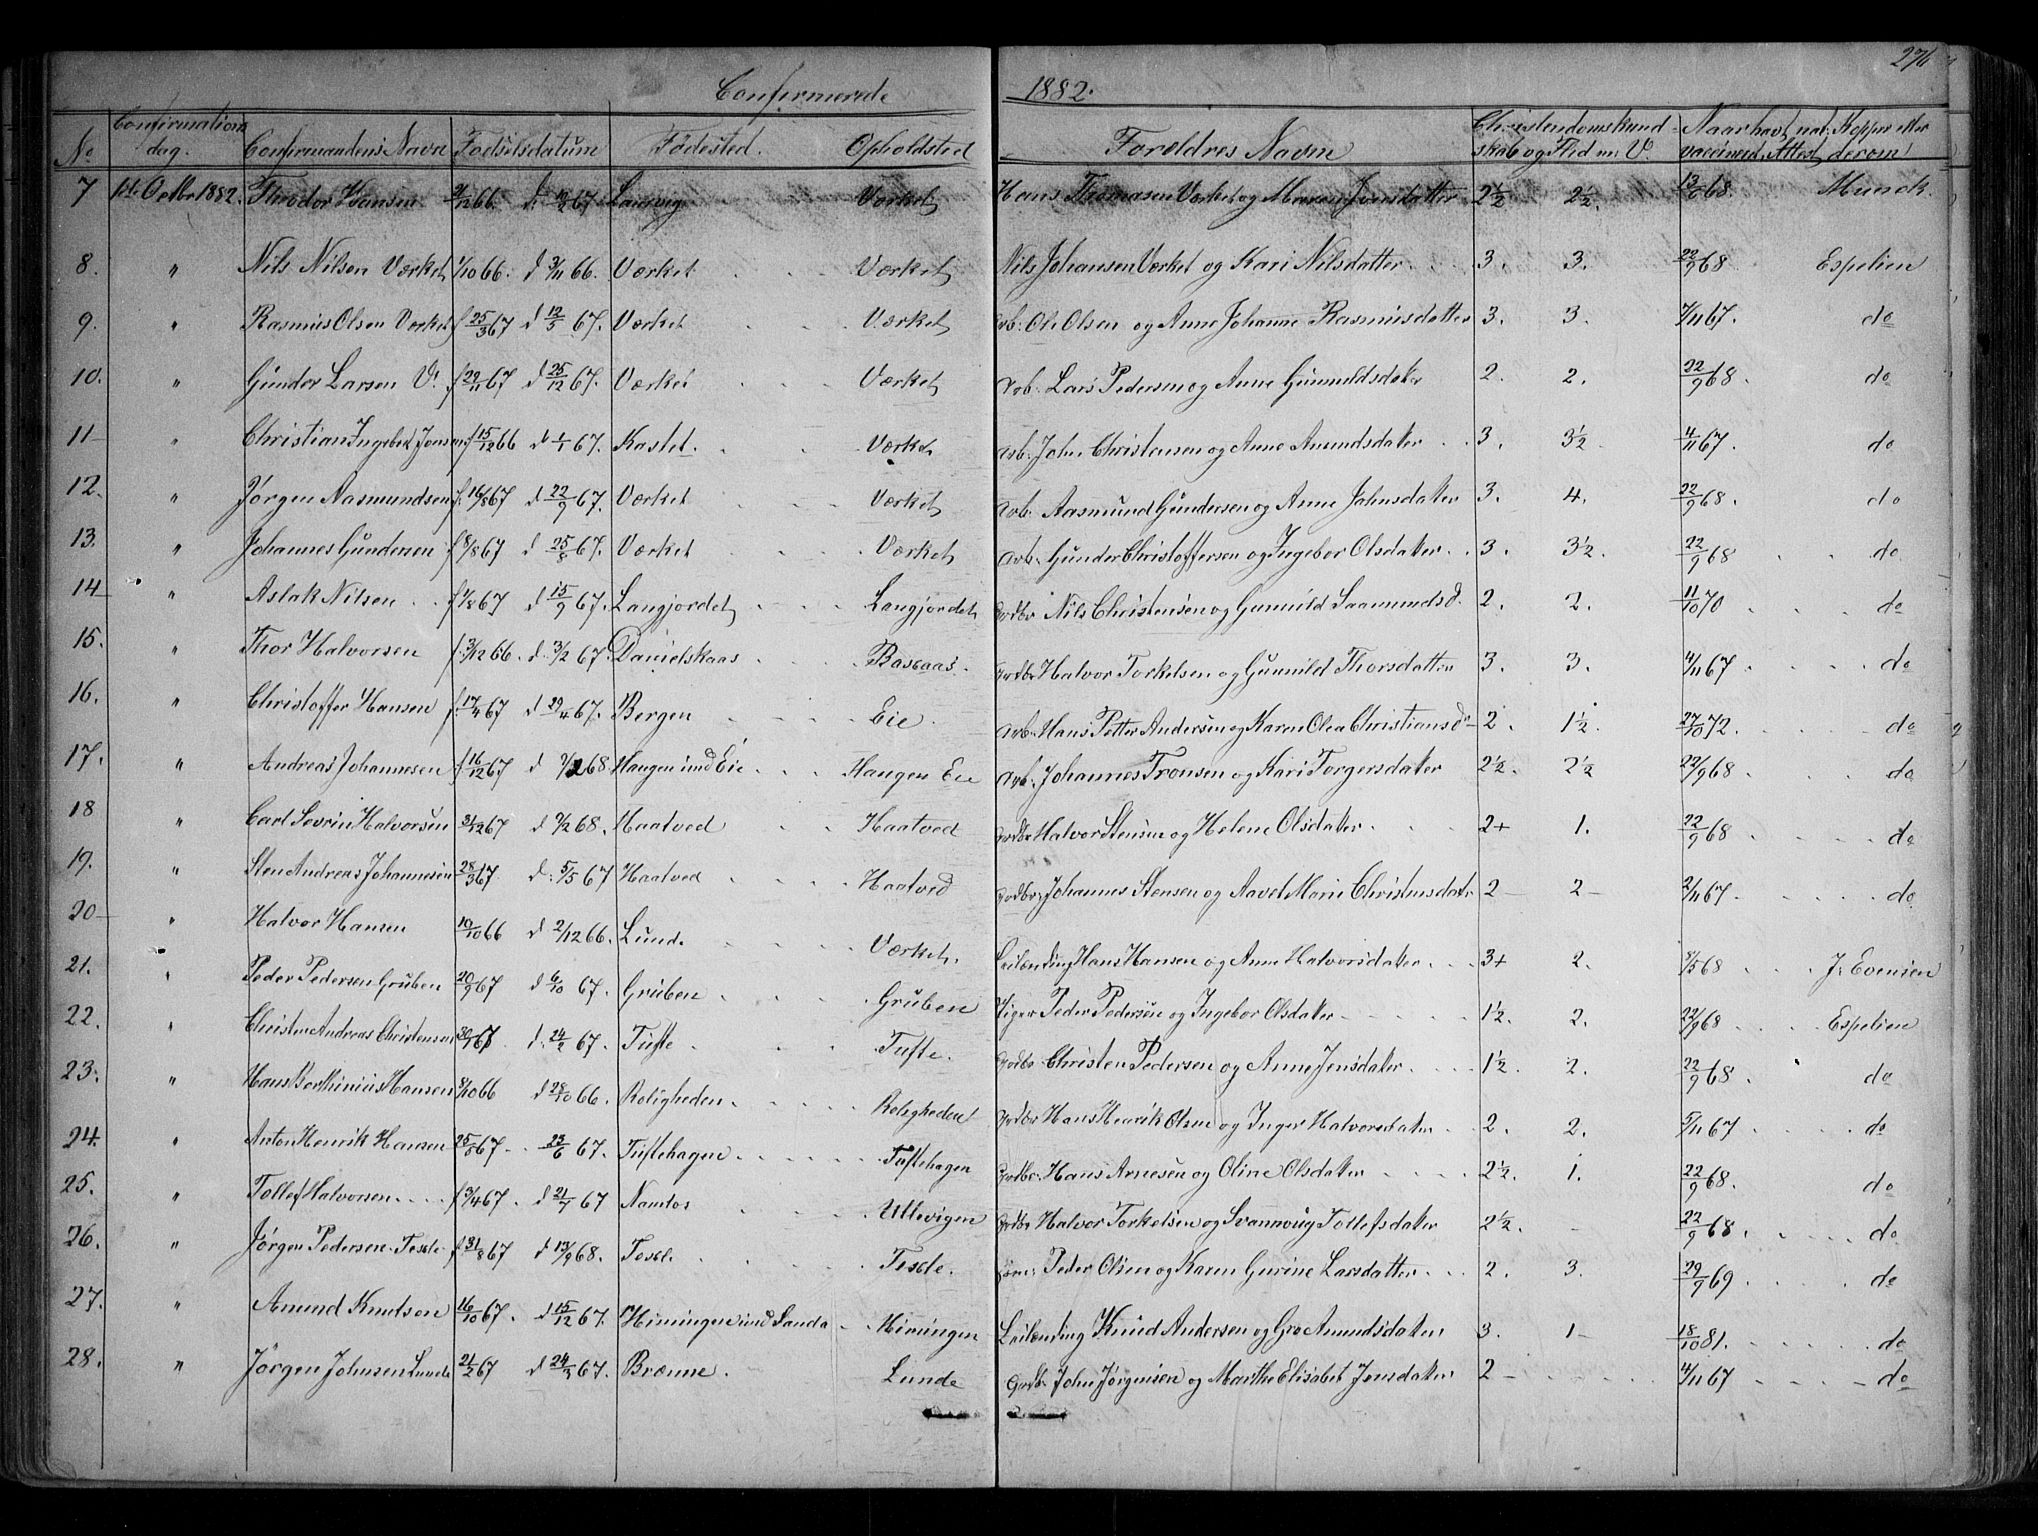 276
Confirmerede 1882.
No Confirmations dag. Confirmandens Navn Fødselsdatum Fødested. Opholdsted Forældres Navn Christendomskundskab og Flid m: V. Naar havt nat: Kopper eller vaccineret, Attest derom
7 1ste Octbr 1882. Theodor Hansen 66. d 67. Laurvig Værket Hans Thomasen Værket og Maren Jonsdatter 2½ 2½. 68. Munck
8. " Nils Nilsen Værket 1/10 66. d 3/11 66. Værket Værket Nils Johansen Værket og Kari Nilsdatter. 3. 3. 22/9 68 Espelien
9. " Rasmus Olsen Værket f 25/3 67 d 12/5 67. Værket Værket Arb: Ole Olsen og Anne Johanne Rasmusdatter 3. 3. 7/11 67. do
10. " Gunder Larsen V. f 22/11 67 d 25/12 67. Værket Værket Arb: Lars Pedersen og Anne Gunuldsdater 2. 2. 22/9 68. do
11 " Christian Ingebret Jonsen f 15/12 66 d 1/1 67. Kastet. Værket Arb. John Christensen og Anne Amundsdater 3. 3½ 4/11 67. do
12. " Jørgen Aasmundsen f. 16/8 67 d 22/9 67. Værket Værket Arb. Aasmund Gundersen og Anne Jahnsdater 3. 4. 22/9 68. do
13. " Johannes Gundersen f 8/8 67 d 25/8 67. Værket Værket Arb. Gunder Christoffersen og Ingebor Olsdater. 3. 3½. 22/9 68 do
14 " Aslak Nilsen f 1/8 67 d 15/9 67. Langjordet Langjordet Grdbr Nils Christensen og Gunild Saamundsd. 2. 2. 11/10 70 do
15. " Thor Halvorsen f. 3/12 66. d. 3/2 67. Danielskaas Basaas. Grdbr Halvor Torkelsen og Gunnild Thorsdatter 3. 3. 4/11 67 do
16. " Christoffer Hansen f. 17/4 67 d 29/4 67. Bergen Eie. Arb. Hans Petter Andersen og Karen Olea Christiansd 2. 1½. 27/10 72. do
17. " Andreas Johannesen f. 16/12 67 d 68 Haugen und Eie Haugen Eie Arb. Johannes Tronsen og Kari Torgersdater 2½. 2½ 22/9 68 do
18 " Carl Sevrin Halvorsen 3/12 67 d 9/2 68. Haatved Haatved Grdbr Halvor Stensen og Helene Olsdater. 2+ 1. 22/9 68 do
19. " Sten Andreas Johannesen 28/3 67 d: 5/5 67 Haatved Haatved Grdbr Johannes Stensen og Aavet Marie Christensdatr 2 — 2 — 2/11 67. do
20 " Halvor Hansen 10/10 66 d 2/12 66. Lund. Værket. Leilending Hans Hansen og Anne Halvorsdater 3+ 2. 5/5 68 J. Evensen
21. " Peder Pedersen Gruben 20/9 67 d 6/10 67. Gruben Gruben Peder Pedersen og Ingebor Olsdater 1½. 2. 22/9 68 Espelien
22. " Christen Andreas Christensen 67 d. 24/2 67. Tufte Tufte. Grdbr Christen Pedersen og Anne Jensdater. 1½. 2. 22/9 68. do
23. " Hans Berthinius Hansen 8/10 66 d 28/10 66. Roligheden. Roligheden Grdbr Hans Henrik Olsen og Inger Halvorsdater 2. 2. 5/11 67 do
24. " Anton Henrik Hansen 25/5 67. 23/6 67. Tuftehagen Tuftehagen Grdbr. Hans Arnesen og Oline Olsdater 2½. 1. 22/9 68. do
25. " Tollef Halvorsen f 3/4 67. d 21/7 67 Namlos Ullevigen Grdbr Halvor Torkelsen og Svannoug Tollefsdater 2½. - 22/9 68. do
26. " Jørgen Pedersen Texle f 31/8 67 d 13/9 68. Texle. Texle. Peder Olsen og Karen Gurine Larsdatter 2. 3. 29/9 69 do
27. " Amund Knutsen 16/10 67. d 15/12 67. Himingen und Sanda Himingen Leilending Knud Andersen og Gro Amundsdater 3. 1 — 18/10 81. do
28. " Jörgen Johnsen Lunde 21/2 67 d 24/3 67. Brænne. Lunde Grdb. John Jørgensen og Marthe Elisabet Jonsdater 2 — 4/11 67 do